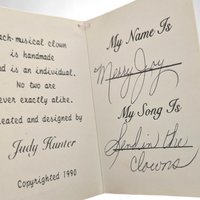 ach musical clown
is handmade
nd is an individual.
No two are
ever exactly alike.
reated and designed by
Judy Hunter
Copyrighted 1990
My Name Is
Merry Joy
My Song Is
Send in the
Clowns